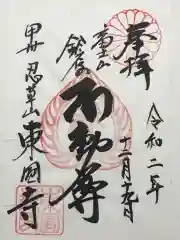 奉拝
令和二年
十二月
富士山
鈴原
不動尊
甲州 忍草山
東圓寺